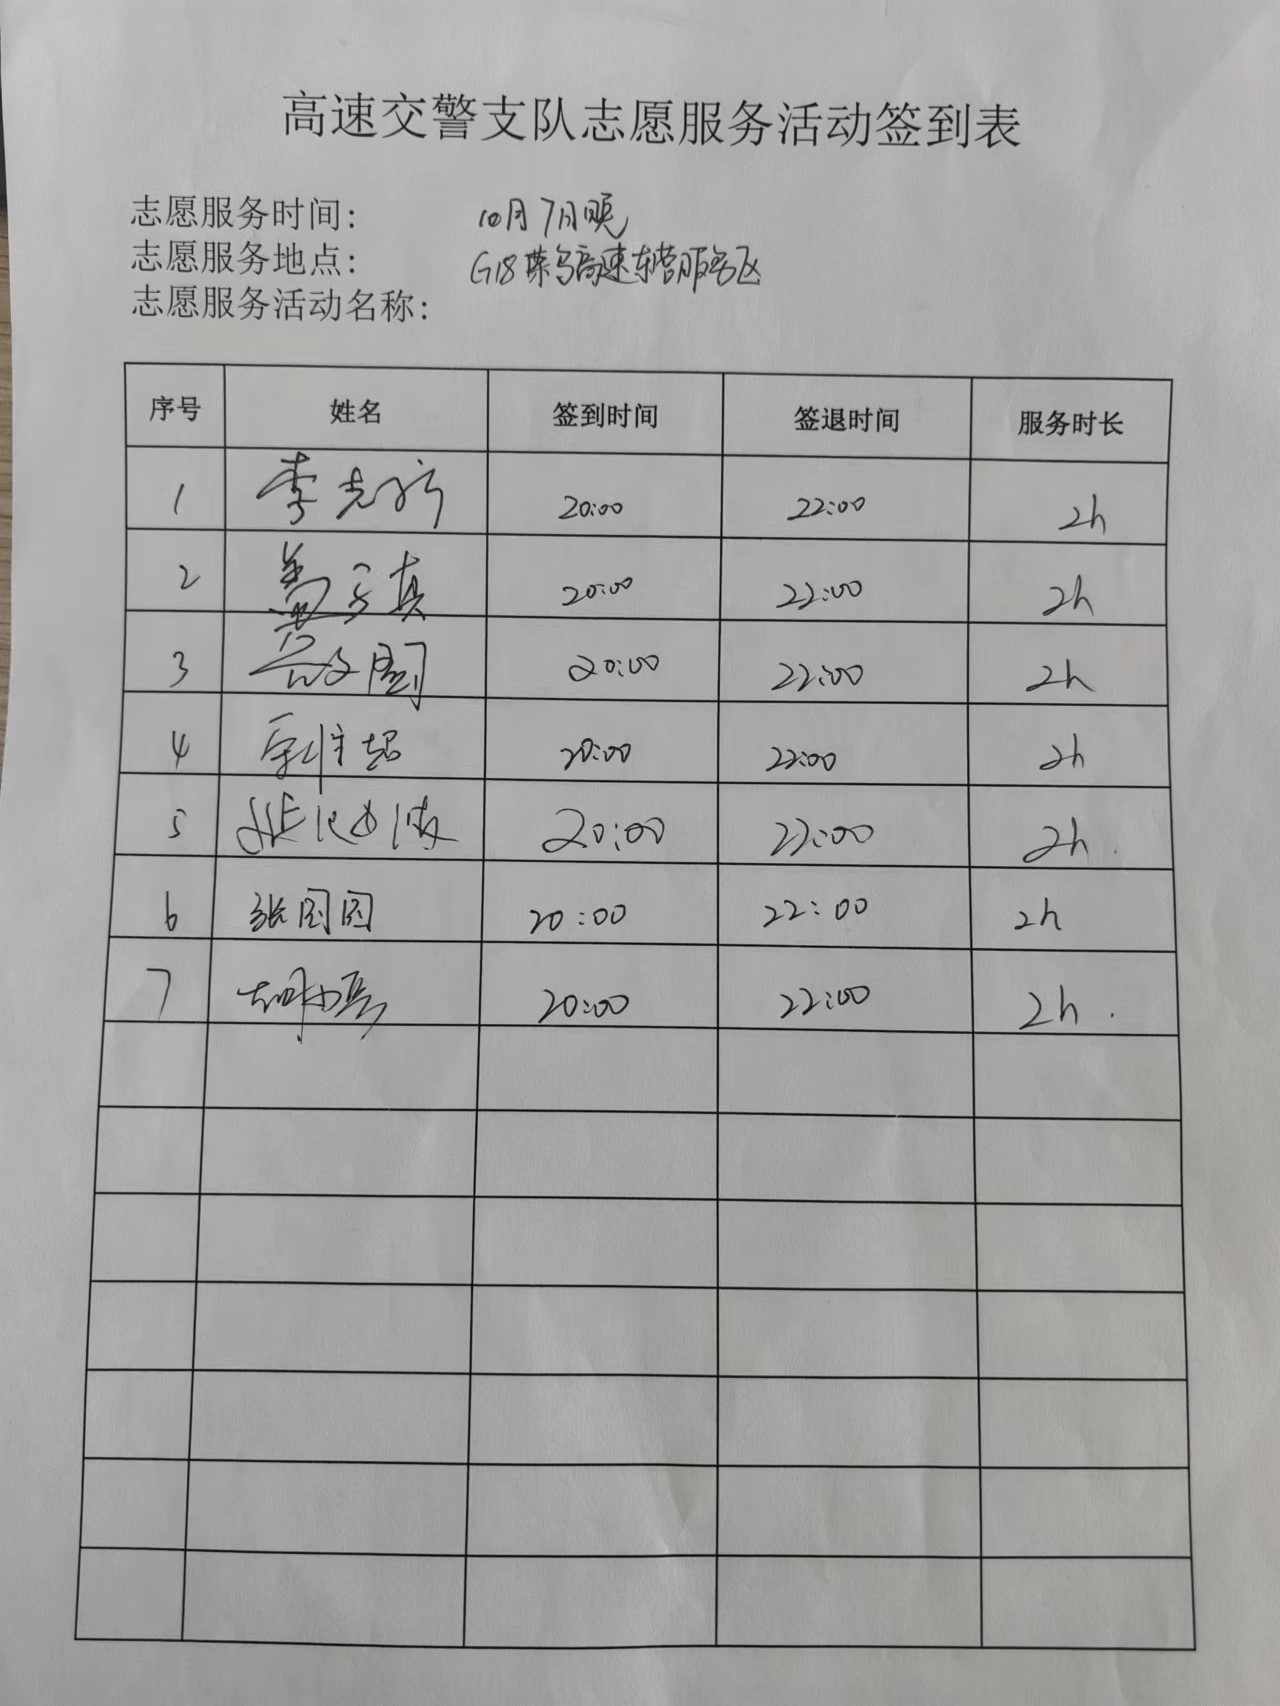 高速交警支队志愿服务活动签到表
志愿服务时间: 10月7日晚
志愿服务地点: G18荣乌高速东营服务区
志愿服务活动名称:
序号 姓名 签到时间 签退时间 服务时长
1 李 20:00 22:00 2h
2 20:00 22:00 2h
3 20:00 22:00 2h
4 20:00 22:00 2h
5 20:00 22:00 2h.
6 张园园 20:00 22:00 2h
7 20:00 22:00 2h.